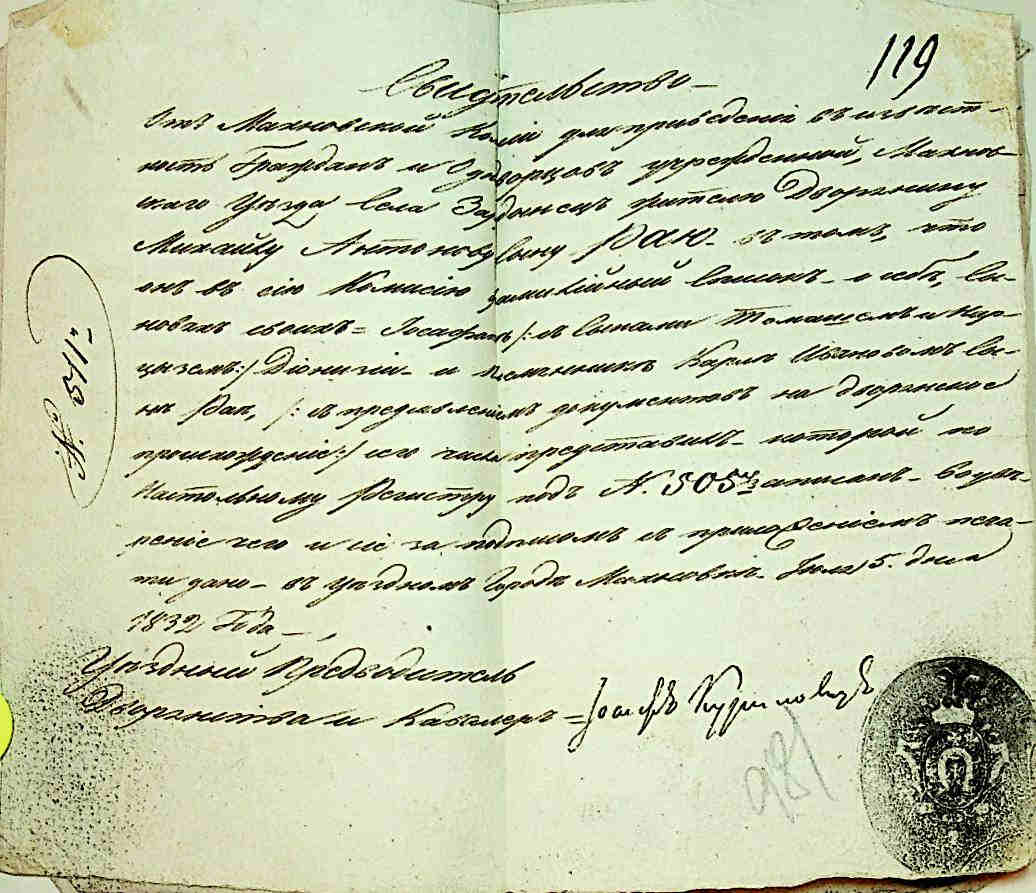 119
Свидѣтельство
Отъ Махновской Комисіи для приведенія въ извѣст-
ность Гражданъ и Однодворцовъ учрежденной, Махнов-
скаго Уѣзда села жителю Дворянину
Михайлу Антоновоу сыну Рак въ томъ, что
онъ въ сію Комисію фамилійный Списокъ о себѣ, сы-
новьяхъ своихъ = Іосафатѣ /: съ сынами Томашемъ и
:/ Діонизіи и племянникѣ Карлѣ Ивановомъ Сы-
нѣ Рак, /: съ предъявленіемъ документовъ на дворянское
происхожденіе :/ сего числа представилъ которой по
Настольному Регистру подъ N. 505 записанъ въ увѣ-
реніе чего и сіе за подписомъ и съ приложеніемъ печа-
ти дано въ уѣздномъ Городѣ Махновкѣ Іюля 5. дня
1832 Года
Уѣздный Предводитель
Дворянства и Кавалеръ = Іосифъ
N. 541
981